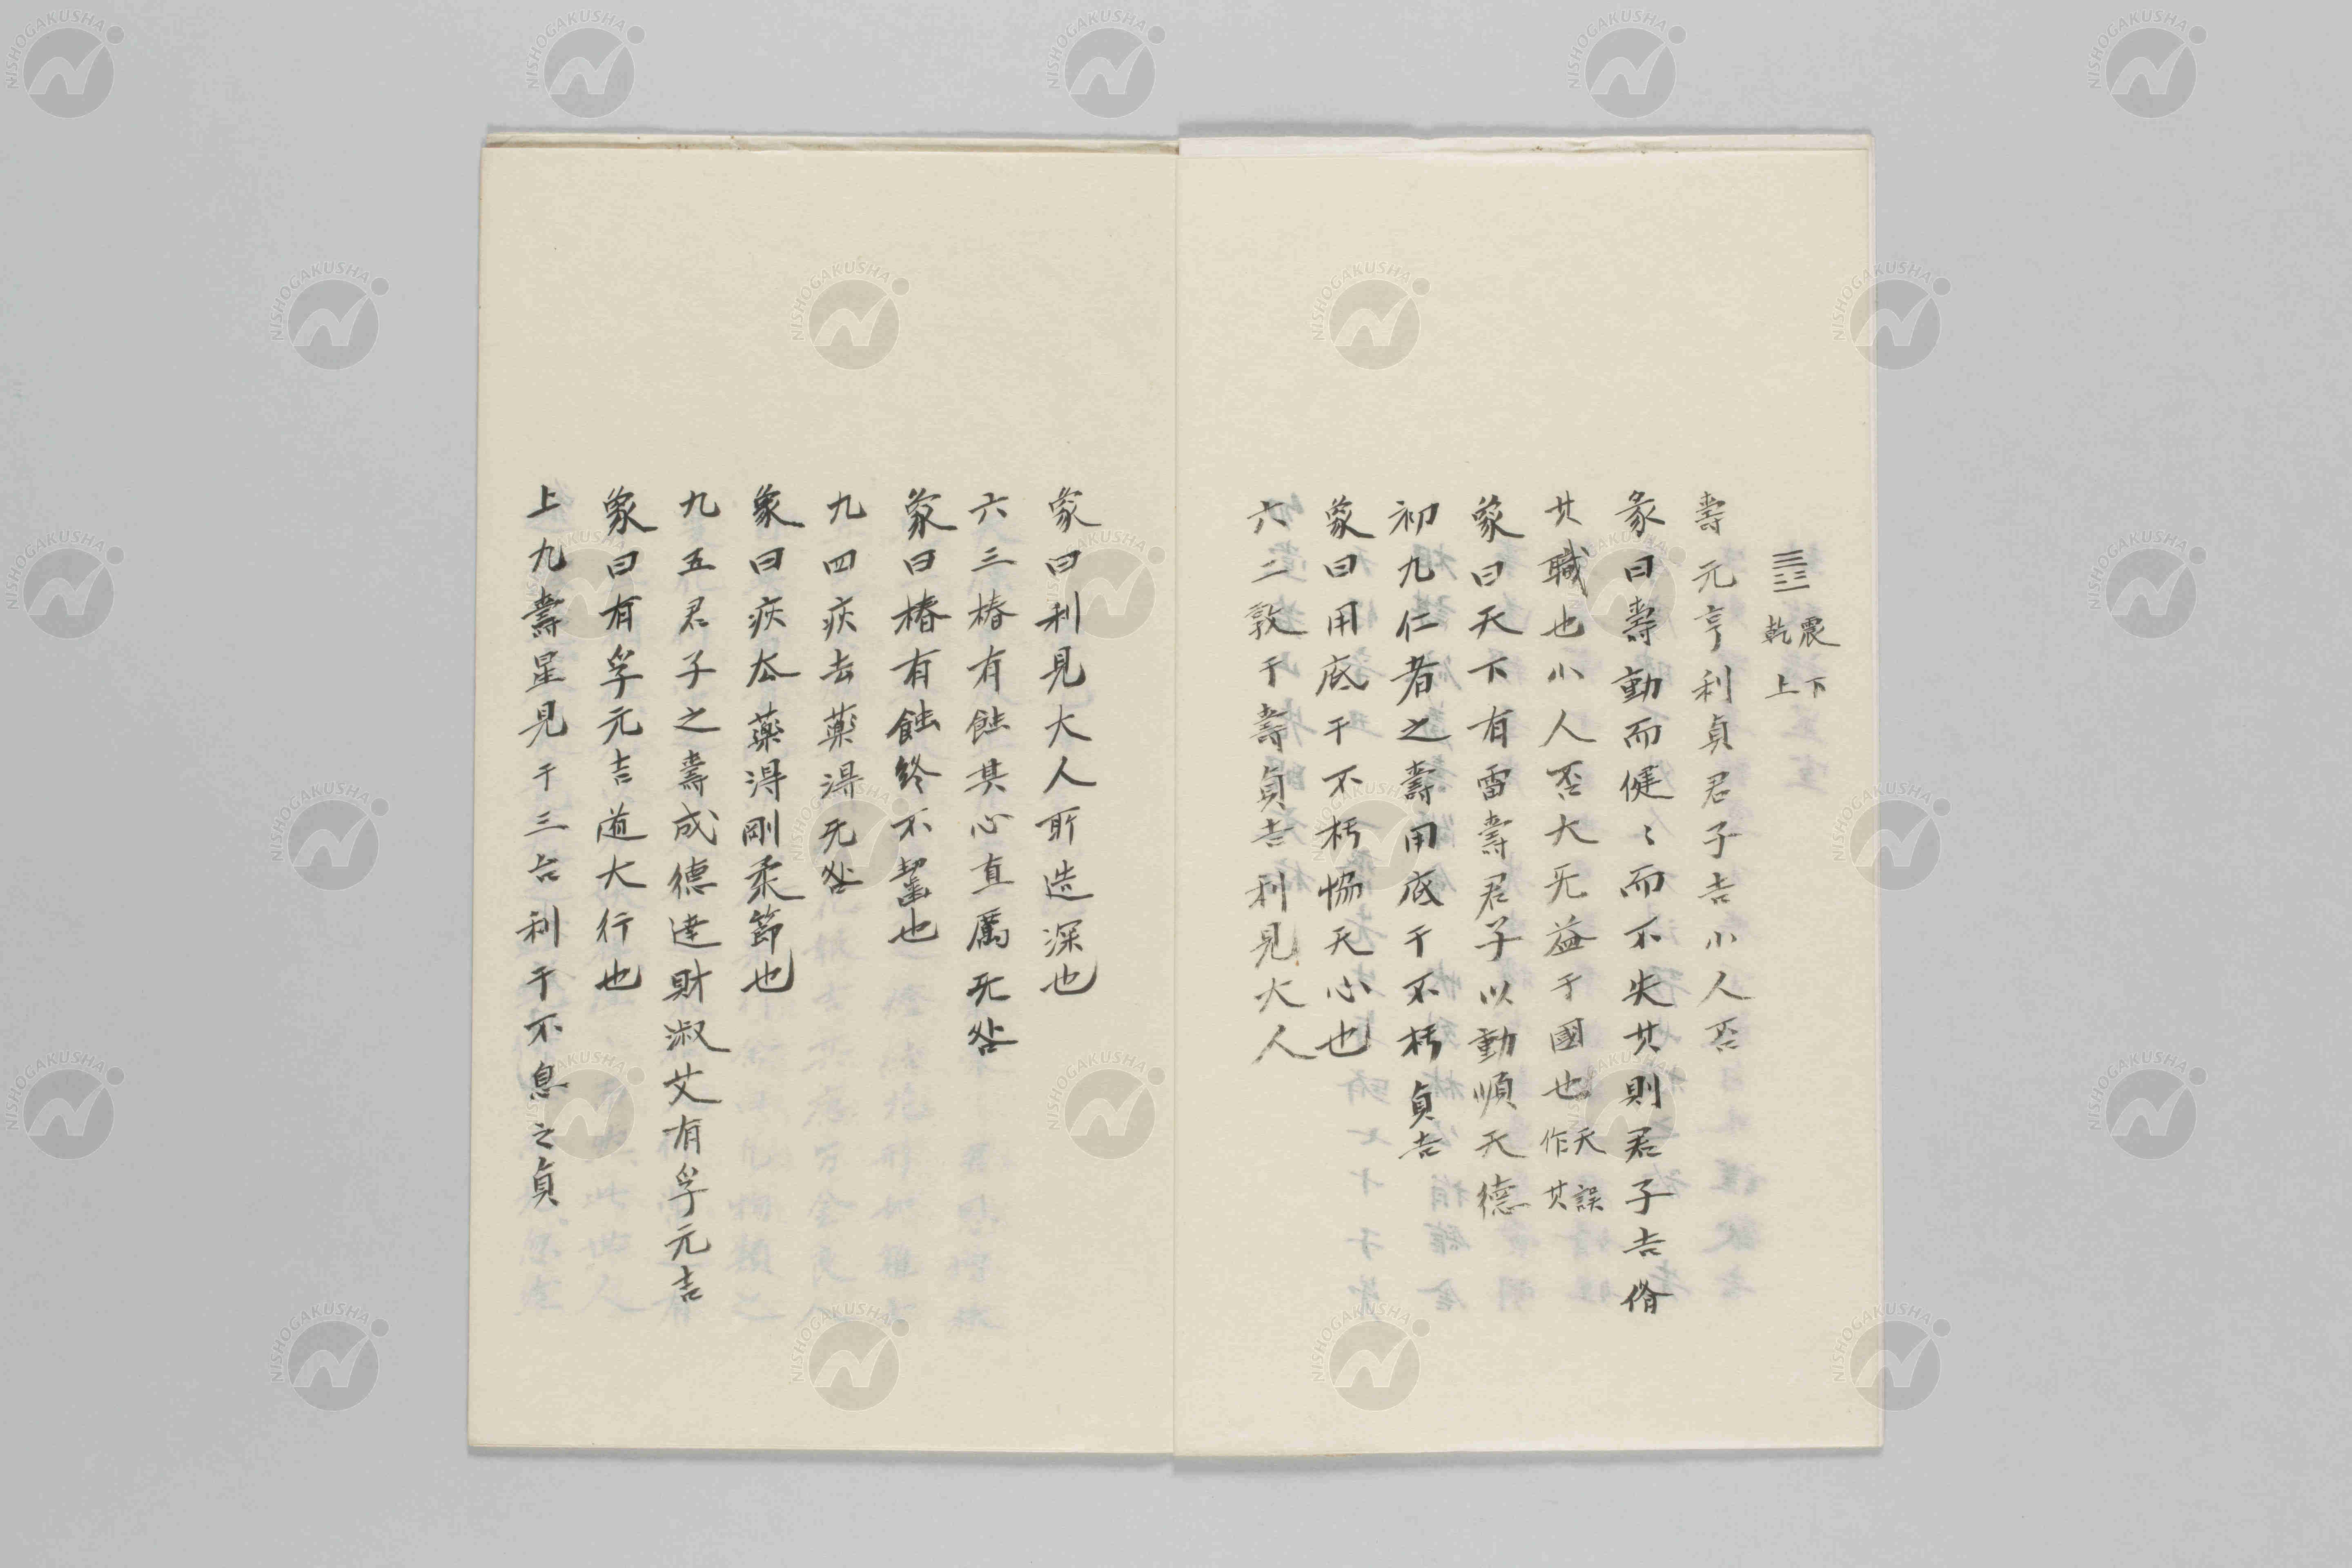 ䷘ 震下乾上
壽元亨利貞君子吉小人否
彖曰壽動而健〻而不失其則君子吉脩
其職也小人否大无益于國也天誤作其
象曰天下有雷壽君子以動順天德
初九仁者之壽用底于不朽貞吉
象曰用底于不朽恊天心也
六二敦于壽貞吉利見大人
象曰利見大人所造深也
六三椿有蝕其心直厲无咎
象曰椿有蝕終不
九四疾去藥得无咎
象曰疾去藥得剛柔節也
九五君子之壽成德達財淑艾有孚元吉
象曰有孚元吉道大行也
上九壽星見于三台利于不息之貞
NISHOGAKUSHA